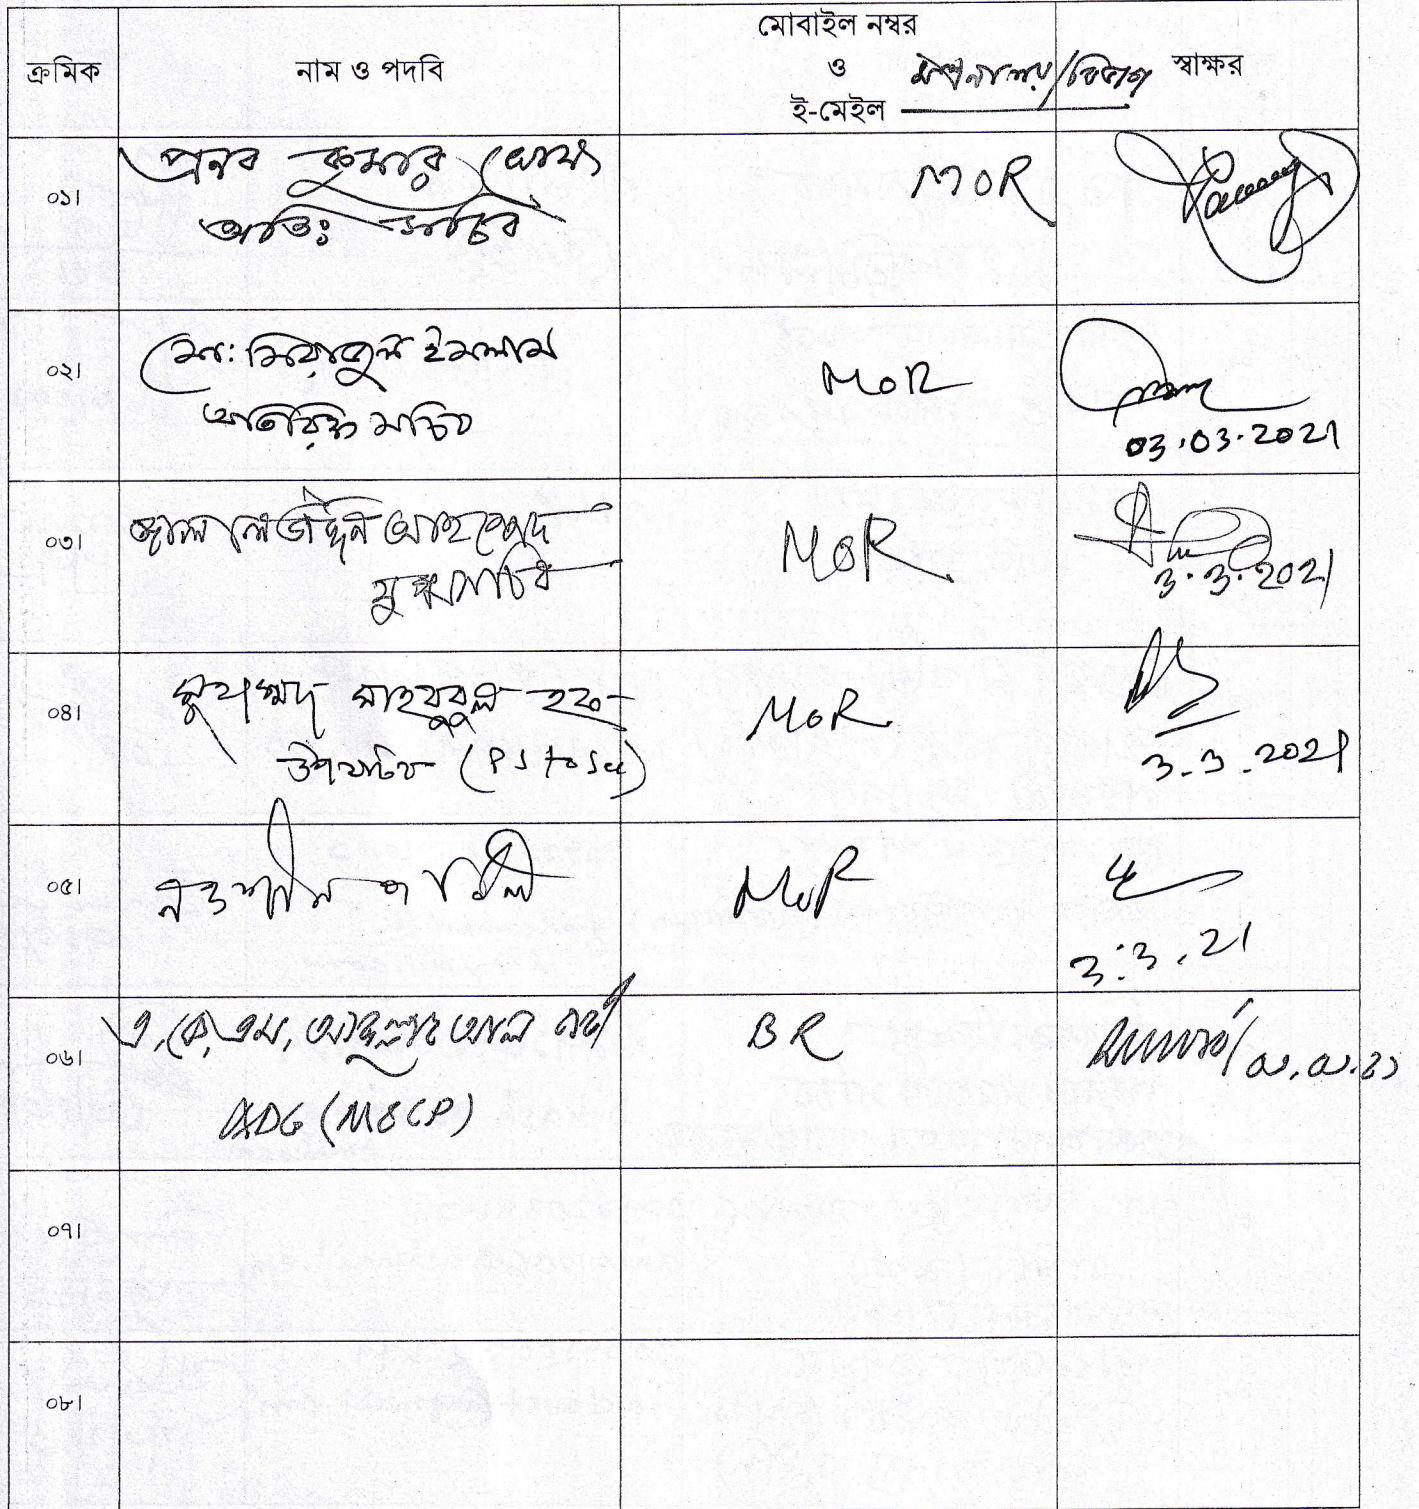 ক্রমিক
নাম ও পদবি
মোবাইল নম্বর
ও
ই-মেইল
মন্ত্রণালয়/বিভাগ
স্বাক্ষর
০১।
প্রনব কুমার ঘোষ
অতিঃ সচিব
MOR
০২।
মো: মিয়াজুল ইসলাম
অতিরিক্ত সচিব
MOR
03.03.2021
০৩।
জালাল উদ্দিন আহম্মেদ
যুগ্মসচিব
MOR
3.3.2021
০৪।
মুহাম্মদ মাহবুবুল হক
উপসচিব (PS to Sec)
MOR
3.3.2021
০৫।
MOR
3.3.21
০৬।
এ, কে, এম, আব্দুল্লাহ আল বাকী
ADG (M&CP)
BR
০৭।
০৮।